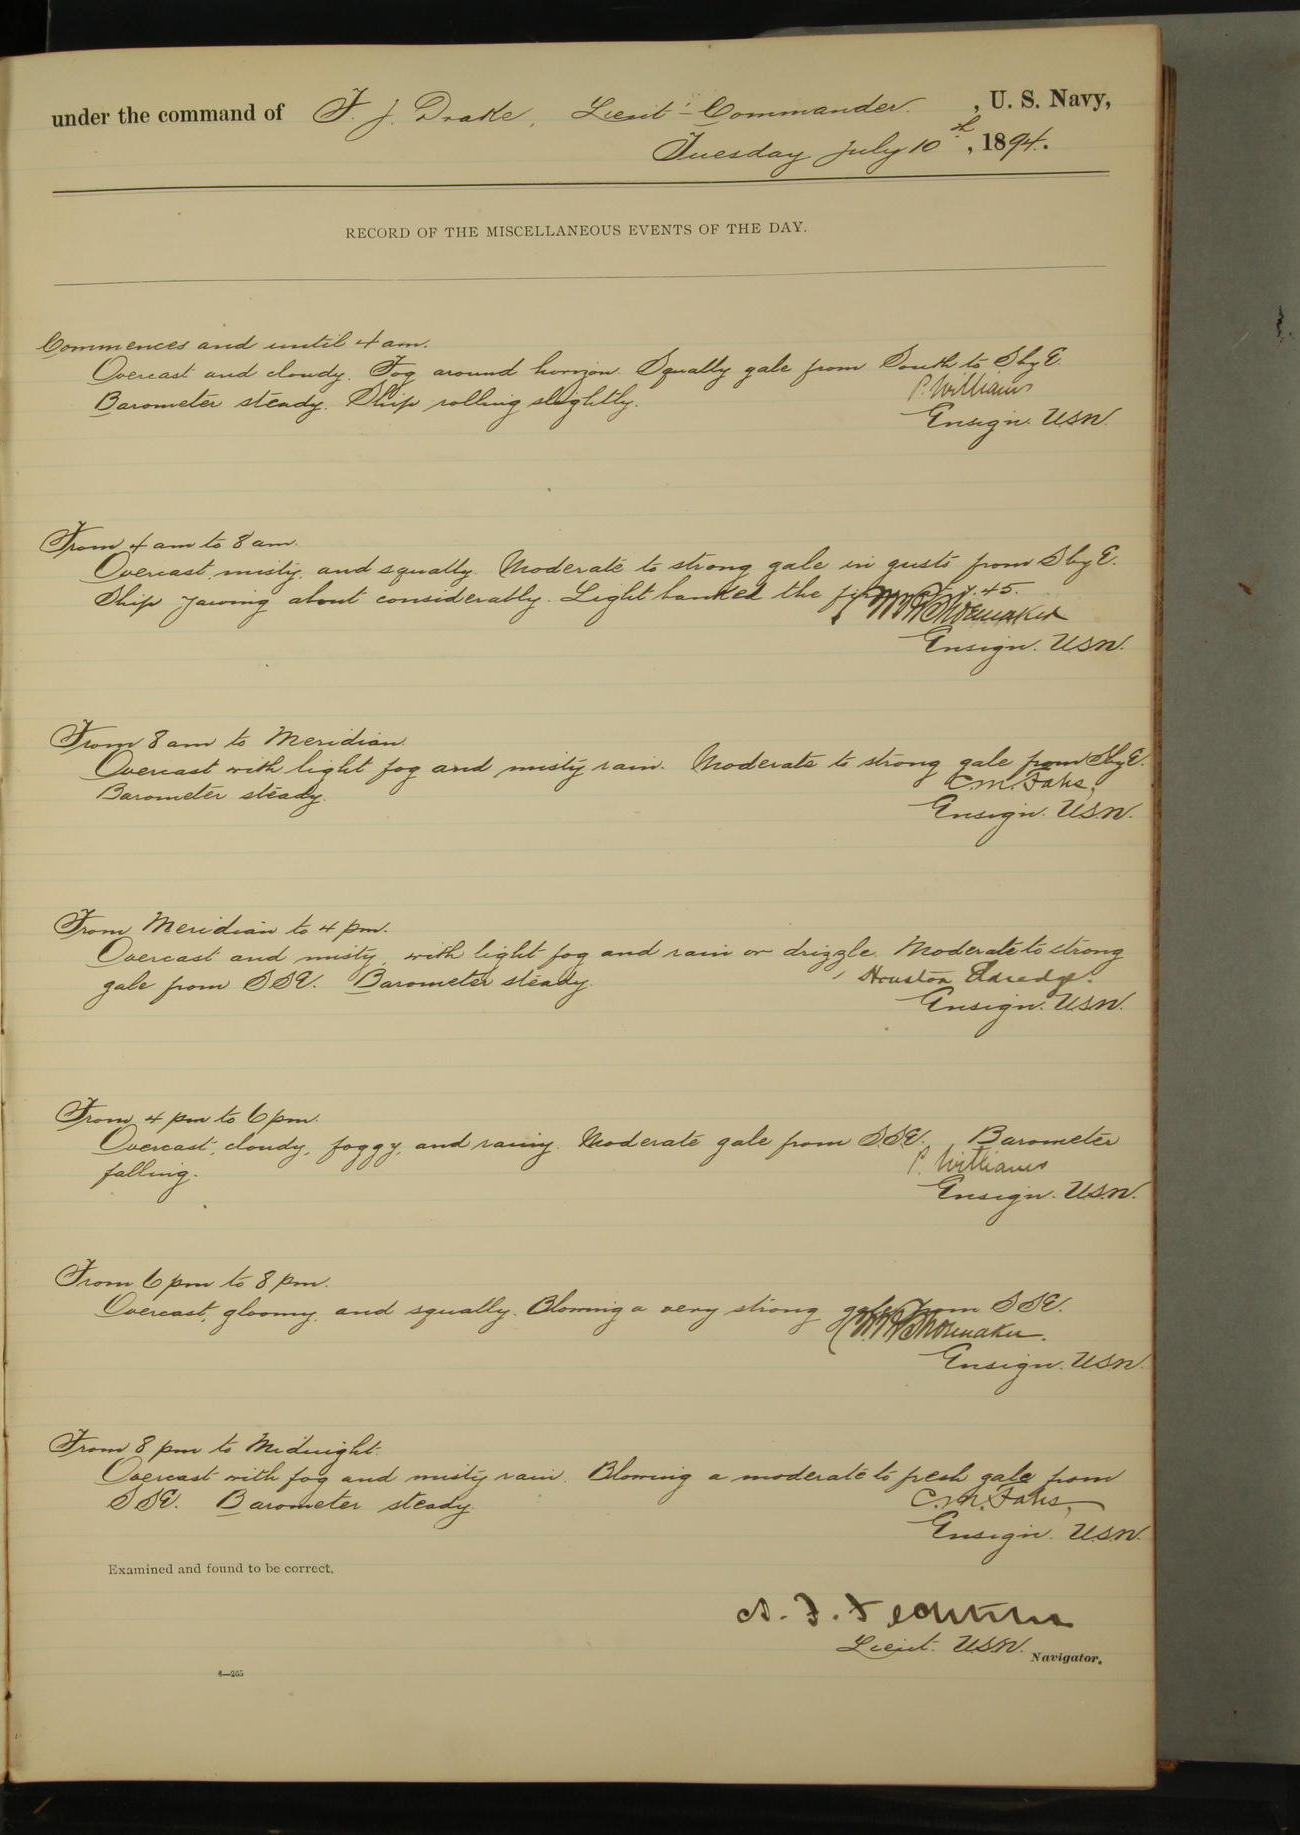 under the command of F. J. Drake, Lieut-Commander, U. S. Navy,
Tuesday July 10th, 1894.
RECORD OF THE MISCELLANEOUS EVENTS OF THE DAY.
Commences and until 4 am.
Overcast and cloudy. Fog around horizon. Squally gale from South to S by E.
Barometer steady. Ship rolling slightly.
P. Williams
Ensign. U.S.N.
From 4 am to 8 am.
Overcast, misty, and squally. Moderate to strong gale in gusts from S by E.
Ship yawing about considerably. Light banked the fires at 7.45.
Shoemaker
Ensign. U.S.N.
From 8 am to Meridian.
Overcast with light fog and misty rain. Moderate to strong gale from S by E.
Barometer steady.
C. M. Fahs,
Ensign. U.S.N.
From Meridian to 4 pm.
Overcast and misty, with light fog and rain or drizzle. Moderate to strong
gale from SSE. Barometer steady.
Houston Eldredge.
Ensign. U.S.N.
From 4 pm to 6 pm.
Overcast, cloudy, foggy, and rainy. Moderate gale from SSE. Barometer
falling.
P. Williams
Ensign. U.S.N.
From 6 pm to 8 pm.
Overcast, gloomy, and squally. Blowing a very strong gale from SSE.
Shoemaker.
Ensign. U.S.N.
From 8 pm to Midnight.
Overcast with fog and misty rain. Blowing a moderate to fresh gale from
SSE. Barometer steady.
C. M. Fahs,
Ensign. U.S.N.
Examined and found to be correct.
Lieut. U.S.N. Navigator.
6—265